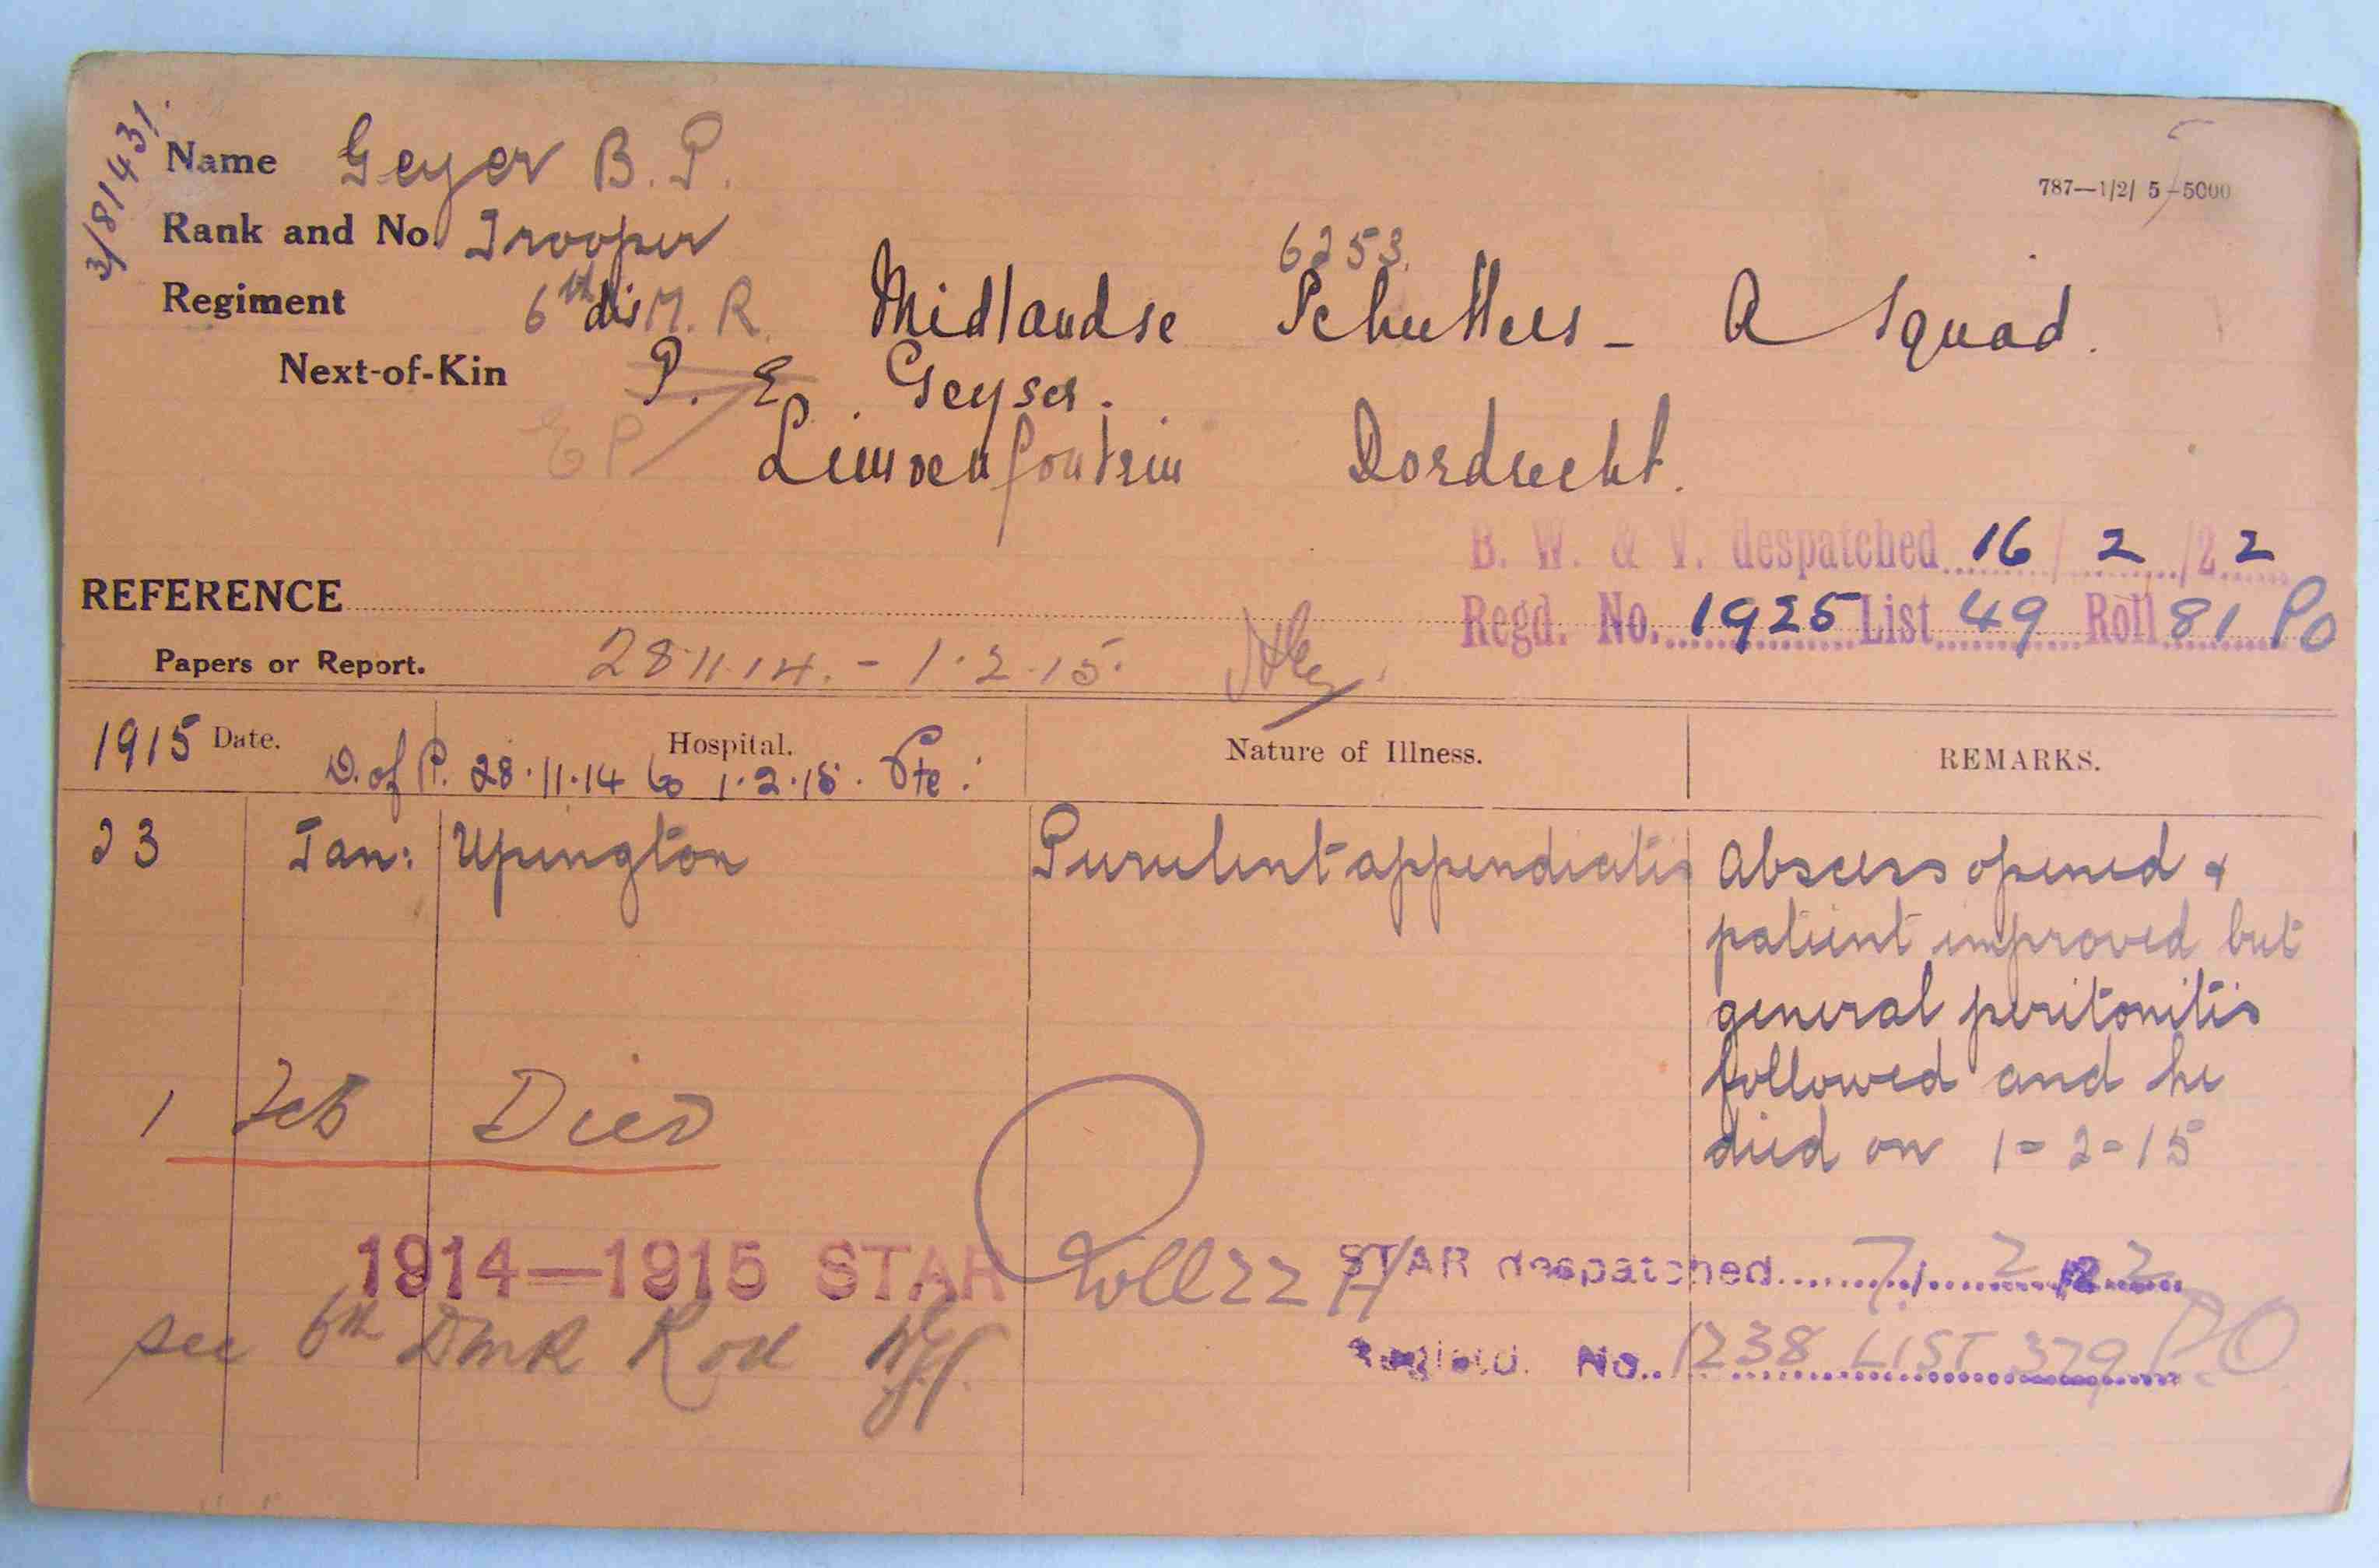 3/81431.
Name Geyer B. P.
787—1/2/15—5000
Rank and No. Trooper 6253.
Regiment 6th dis M. R. Midlandse Schutters - A Squad.
Next-of-Kin P. E. Geyser.
E P Leuwenfontein Dordrecht.
B. W. & V. despatched 16/2/22
REFERENCE
Regd. No. 1925 List 49 Roll 81 PO
Papers or Report. 28.11.14. - 1.2.15.
1915 Date. Hospital. Nature of Illness. REMARKS.
D. of P. 28.11.14 to 1.2.15. Pte:
23 Jan: Upington Purulent appendicitis Abscess opened &
patient improved but
general peritonitis
followed and he
died on 1-2-15
1 Feb Died
1914—1915 STAR Roll 22 A STAR despatched 7/2/22
see 6th DMR Roll
Registd. No. 1238 LIST 379 PO